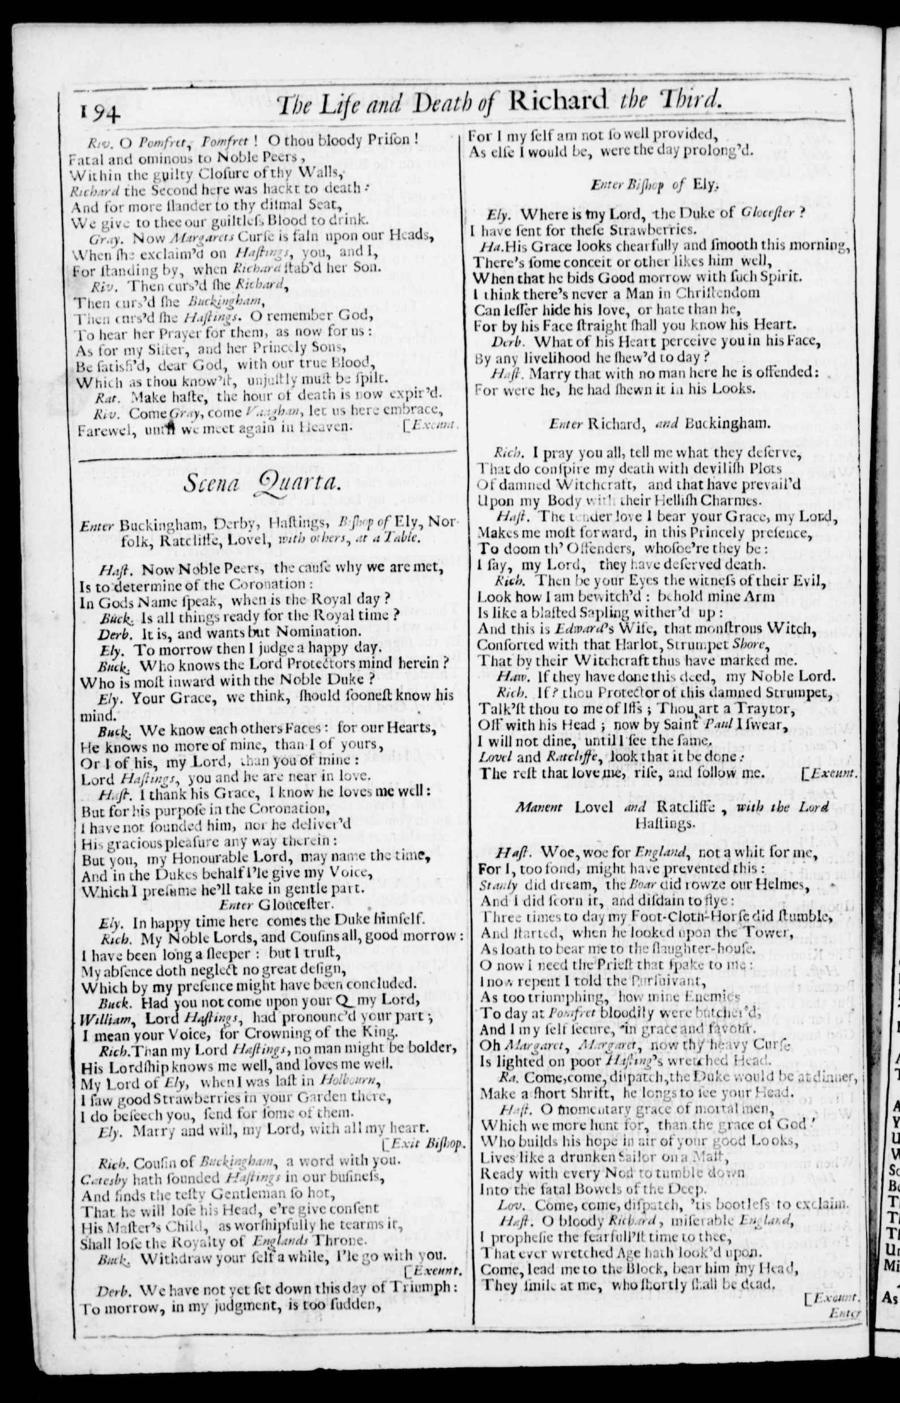 194
The Life and Death of Richard the Third.
Riv. O Pomfret, Pomfret ! O thou bloody Priſon !
Fatal and ominous to Noble Peers,
Within the guilty Cloſure of thy Walls,
Richard the Second here was hackt to death :
And for more ſlander to thy diſmal Seat,
We give to thee our guiltleſs Blood to drink.
Gray. Now Margarets Curſe is faln upon our Heads,
When ſhe exclaim'd on Haſtings, you, and I,
For ſtanding by, when Richard ſtab'd her Son.
Riv. Then curs'd ſhe Richard,
Then curs'd ſhe Buckingham,
Then curs'd ſhe Haſtings. O remember God,
To hear her Prayer for them, as now for us :
As for my Siſter, and her Princely Sons,
Be ſatisfi'd, dear God, with our true Blood,
Which as thou know'ſt, unjuſtly muſt be ſpilt.
Rat. Make haſte, the hour of death is now expir'd.
Riv. Come Gray, come Vaughan, let us here embrace,
Farewel, until we meet again in Heaven. [Exeunt.
Scena Quarta.
Enter Buckingham, Derby, Haſtings, Biſhop of Ely, Nor-
folk, Ratcliffe, Lovel, with others, at a Table.
Haſt. Now Noble Peers, the cauſe why we are met,
Is to determine of the Coronation :
In Gods Name ſpeak, when is the Royal day ?
Buck. Is all things ready for the Royal time ?
Derb. It is, and wants but Nomination.
Ely. To morrow then I judge a happy day.
Buck. Who knows the Lord Protectors mind herein ?
Who is moſt inward with the Noble Duke ?
Ely. Your Grace, we think, ſhould ſooneſt know his
mind.
Buck. We know each others Faces : for our Hearts,
He knows no more of mine, than I of yours,
Or I of his, my Lord, than you of mine :
Lord Haſtings, you and he are near in love.
Haſt. I thank his Grace, I know he loves me well :
But for his purpoſe in the Coronation,
I have not ſounded him, nor he deliver'd
His gracious pleaſure any way therein :
But you, my Honourable Lord, may name the time,
And in the Dukes behalf I'le give my Voice,
Which I preſume he'll take in gentle part.
Enter Glouceſter.
Ely. In happy time here comes the Duke himſelf.
Rich. My Noble Lords, and Couſins all, good morrow :
I have been long a ſleeper : but I truſt,
My abſence doth neglect no great deſign,
Which by my preſence might have been concluded.
Buck. Had you not come upon your Q my Lord,
William, Lord Haſtings, had pronounc'd your part ;
I mean your Voice, for Crowning of the King.
Rich. Than my Lord Haſtings, no man might be bolder,
His Lordſhip knows me well, and loves me well.
My Lord of Ely, when I was laſt in Holbourn,
I ſaw good Strawberries in your Garden there,
I do beſeech you, ſend for ſome of them.
Ely. Marry and will, my Lord, with all my heart.
[Exit Biſhop.
Rich. Couſin of Buckingham, a word with you.
Catesby hath ſounded Haſtings in our buſineſs,
And finds the teſty Gentleman ſo hot,
That he will loſe his Head, e're give conſent
His Maſter's Child, as worſhipfully he tearms it,
Shall loſe the Royalty of Englands Throne.
Buck. Withdraw your ſelf a while, I'le go with you.
[Exeunt.
Derb. We have not yet ſet down this day of Triumph :
To morrow, in my judgment, is too ſudden,
For I my ſelf am not ſo well provided,
As elſe I would be, were the day prolong'd.
Enter Biſhop of Ely.
Ely. Where is my Lord, the Duke of Gloceſter ?
I have ſent for theſe Strawberries.
Ha. His Grace looks chearfully and ſmooth this morning,
There's ſome conceit or other likes him well,
When that he bids Good morrow with ſuch Spirit.
I think there's never a Man in Chriſtendom
Can leſſer hide his love, or hate than he,
For by his Face ſtraight ſhall you know his Heart.
Derb. What of his Heart perceive you in his Face,
By any livelihood he ſhew'd to day ?
Haſt. Marry that with no man here he is offended :
For were he, he had ſhewn it in his Looks.
Enter Richard, and Buckingham.
Rich. I pray you all, tell me what they deſerve,
That do conſpire my death with deviliſh Plots
Of damned Witchcraft, and that have prevail'd
Upon my Body with their Helliſh Charmes.
Haſt. The tender love I bear your Grace, my Lord,
Makes me moſt forward, in this Princely preſence,
To doom th' Offenders, whoſoe're they be :
I ſay, my Lord, they have deſerved death.
Rich. Then be your Eyes the witneſs of their Evil,
Look how I am bewitch'd : behold mine Arm
Is like a blaſted Sapling wither'd up :
And this is Edward's Wife, that monſtrous Witch,
Conſorted with that Harlot, Strumpet Shore,
That by their Witchcraft thus have marked me.
Haw. If they have done this deed, my Noble Lord.
Rich. If ? thou Protector of this damned Strumpet,
Talk'ſt thou to me of Iffs ; Thou art a Traytor,
Off with his Head ; now by Saint Paul I ſwear,
I will not dine, until I ſee the ſame.
Lovel and Ratcliffe, look that it be done :
The reſt that love me, riſe, and follow me. [Exeunt.
Manent Lovel and Ratcliffe, with the Lord
Haſtings.
Haſt. Woe, woe for England, not a whit for me,
For I, too fond, might have prevented this :
Stanly did dream, the Boar did rowze our Helmes,
And I did ſcorn it, and diſdain to flye :
Three times to day my Foot-Cloth-Horſe did ſtumble,
And ſtarted, when he looked upon the Tower,
As loath to bear me to the ſlaughter-houſe.
O now I need the Prieſt that ſpake to me :
I now repent I told the Purſuivant,
As too triumphing, how mine Enemies
To day at Pomfret bloodily were butcher'd,
And I my ſelf ſecure, in grace and favour.
Oh Margaret, Margaret, now thy heavy Curſe
Is lighted on poor Haſting's wretched Head.
Ra. Come, come, diſpatch, the Duke would be at dinner,
Make a ſhort Shrift, he longs to ſee your Head.
Haſt. O momentary grace of mortal men,
Which we more hunt for, than the grace of God !
Who builds his hope in air of your good Looks,
Lives like a drunken Sailor on a Maſt,
Ready with every Nod to tumble down
Into the fatal Bowels of the Deep.
Lov. Come, come, diſpatch, 'tis bootleſs to exclaim.
Haſt. O bloody Richard, miſerable England,
I propheſie the fearfull'ſt time to thee,
That ever wretched Age hath look'd upon.
Come, lead me to the Block, bear him my Head,
They ſmile at me, who ſhortly ſhall be dead.
[Exeunt.
Enter